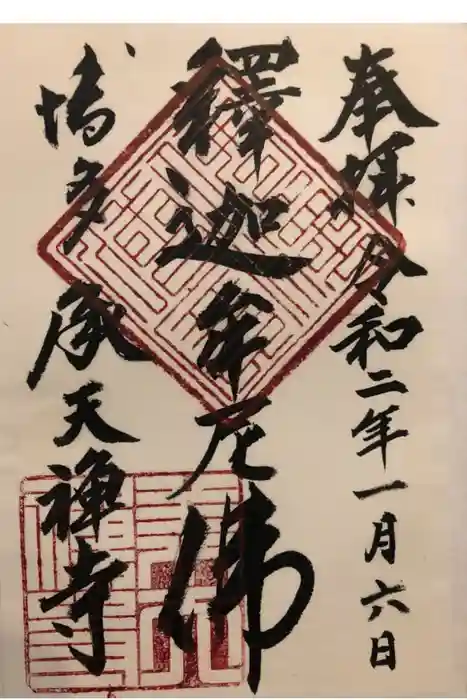 奉拝令和二年一月六日
釋迦牟尼佛
博多承天禅寺